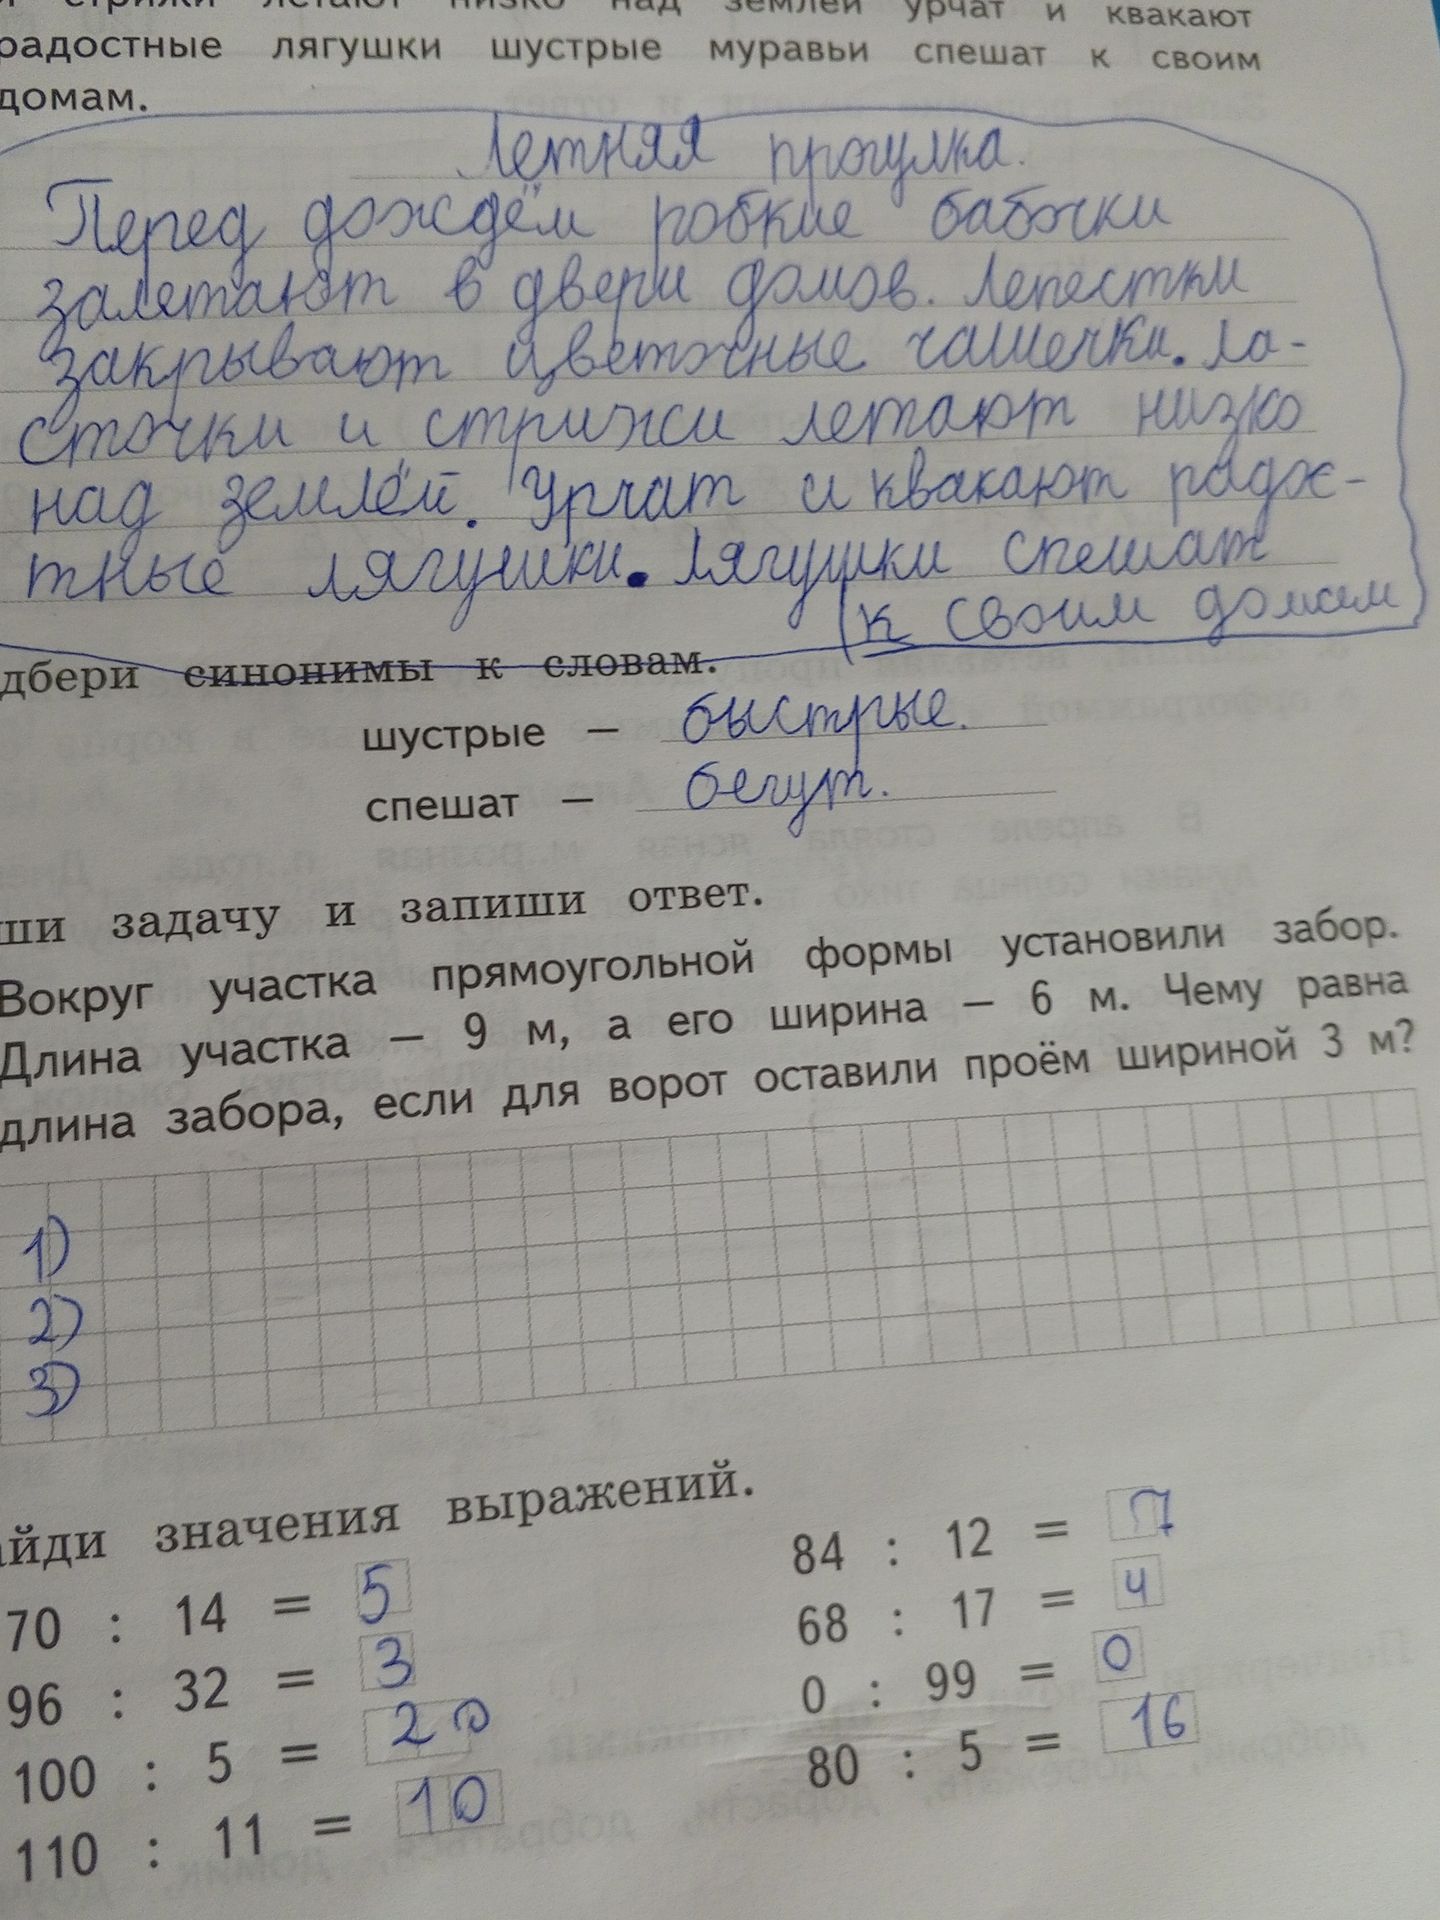 и стрижи летают низко над землёй урчат и квакают
радостные лягушки шустрые муравьи спешат к своим
домам.
Летняя прогулка.
Перед дождём робкие бабочки
залетают в двери домов. Лепестки
закрывают цветочные чашечки. Ла-
сточки и стрижи летают низко
над землёй. Урчат и квакают радос-
тные лягушки. Лягушки спешат
к своим домам
дбери синонимы к словам.
шустрые – быстрые.
спешат – бегут.
ши задачу и запиши ответ.
Вокруг участка прямоугольной формы установили забор.
Длина участка – 9 м, а его ширина – 6 м. Чему равна
длина забора, если для ворот оставили проём шириной 3 м?
1)
2)
3)
айди значения выражений.
70 : 14 = 5
96 : 32 = 3
100 : 5 = 20
110 : 11 = 10
84 : 12 = 7
68 : 17 = 4
0 : 99 = 0
80 : 5 = 16